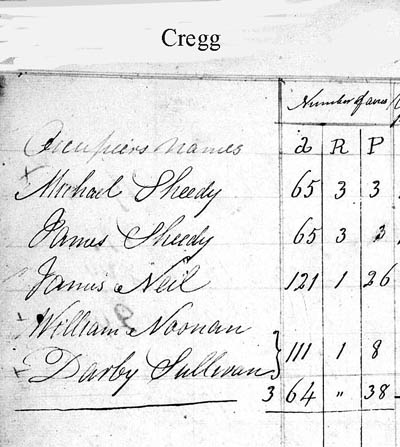 Cregg
Number of acres
Occupiers names a R P
Michael Sheedy 65 3 3
James Sheedy 65 3 3
James Neil 121 1 26
William Noonan
Darby Sullivan } 111 1 8
364 " 38